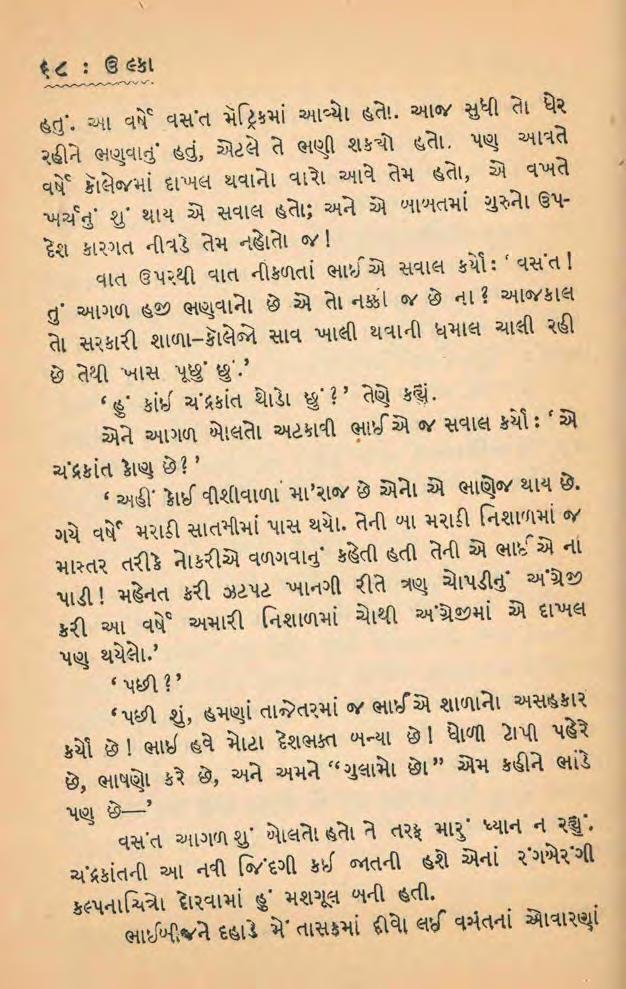 ૬૮ : ઉલ્કા
હતું. આ વર્ષે વસંત મૅટ્રિકમાં આવ્યો હતો. આજ સુધી તો ઘેર
રહીને ભણવાનું હતું, એટલે તે ભણી શકયો હતો. પણ આવતે
વર્ષે કૉલેજમાં દાખલ થવાનો વારો આવે તેમ હતો, એ વખતે
ખર્ચનું શું થાય એ સવાલ હતો; અને એ બાબતમાં ગુરુનો ઉપ-
દેશ કારગત નીવડે તેમ નહોતો જ !
વાત ઉપરથી વાત નીકળતાં ભાઈએ સવાલ કર્યો : ‘ વસંત !
તું આગળ હજી ભણવાનો છે એ તો નક્કી જ છે ના ? આજકાલ
તો સરકારી શાળા–કૉલેજો સાવ ખાલી થવાની ધમાલ ચાલી રહી
છે તેથી ખાસ પૂછું છું.’
‘ હું કાંઈ ચંદ્રકાંત થોડો છું ?’ તેણે કહ્યું.
એને આગળ બોલતો અટકાવી ભાઈએ જ સવાલ કર્યો : ‘ એ
ચંદ્રકાંત કોણ છે ?’
‘ અહીં કોઈ વીશીવાળા મા’રાજ છે એનો એ ભાણેજ થાય છે.
ગયે વર્ષે મરાઠી સાતમીમાં પાસ થયો. તેની બા મરાઠી નિશાળમાં જ
માસ્તર તરીકે નોકરીએ વળગવાનું કહેતી હતી તેની એ ભાઈએ ના
પાડી ! મહેનત કરી ઝટપટ ખાનગી રીતે ત્રણ ચોપડીનું અંગ્રેજી
કરી આ વર્ષે અમારી નિશાળમાં ચોથી અંગ્રેજીમાં એ દાખલ
પણ થયેલો.’
‘ પછી ?’
‘પછી શું, હમણાં તાજેતરમાં જ ભાઈએ શાળાનો અસહકાર
કર્યો છે ! ભાઈ હવે મોટા દેશભક્ત બન્યા છે ! ધોળી ટોપી પહેરે
છે, ભાષણો કરે છે, અને અમને “ગુલામો છો” એમ કહીને ભાંડે
પણ છે—’
વસંત આગળ શું બોલતો હતો તે તરફ મારું ધ્યાન ન રહ્યું.
ચંદ્રકાંતની આ નવી જિંદગી કઈ જાતની હશે એનાં રંગબેરંગી
કલ્પનાચિત્રો દોરવામાં હું મશગૂલ બની હતી.
ભાઈબીજને દહાડે મેં તાસકમાં દીવો લઈ વસંતનાં ઓવારણાં